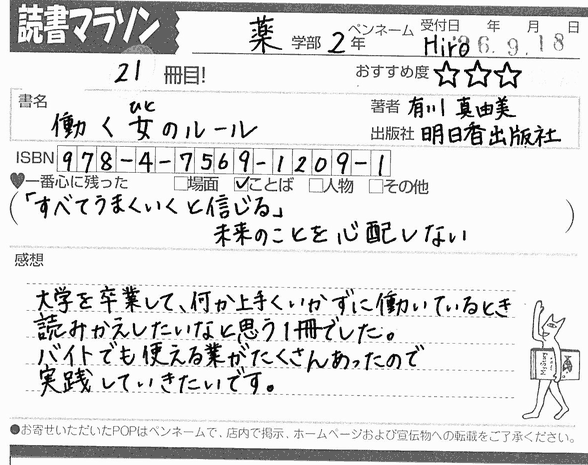 読書マラソン
薬 学部 2年 ペンネーム Hiro 受付日 年 月 日 6.9.18
21 冊目! おすすめ度 ☆☆☆
書名 働く女のルール ひと
著者 有川 真由美
出版社 明日香出版社
ISBN 978-4-7569-1209-1
♥一番心に残った □場面 ☑ことば □人物 □その他
(「すべてうまくいくと信じる」
未来のことを心配しない)
感想
大学を卒業して、何か上手くいかずに働いているとき
読みかえしたいなと思う1冊でした。
バイトでも使える業がたくさんあったので
実践していきたいです。
●お寄せいただいたPOPはペンネームで、店内で掲示、ホームページおよび宣伝物への転載をご了承ください。